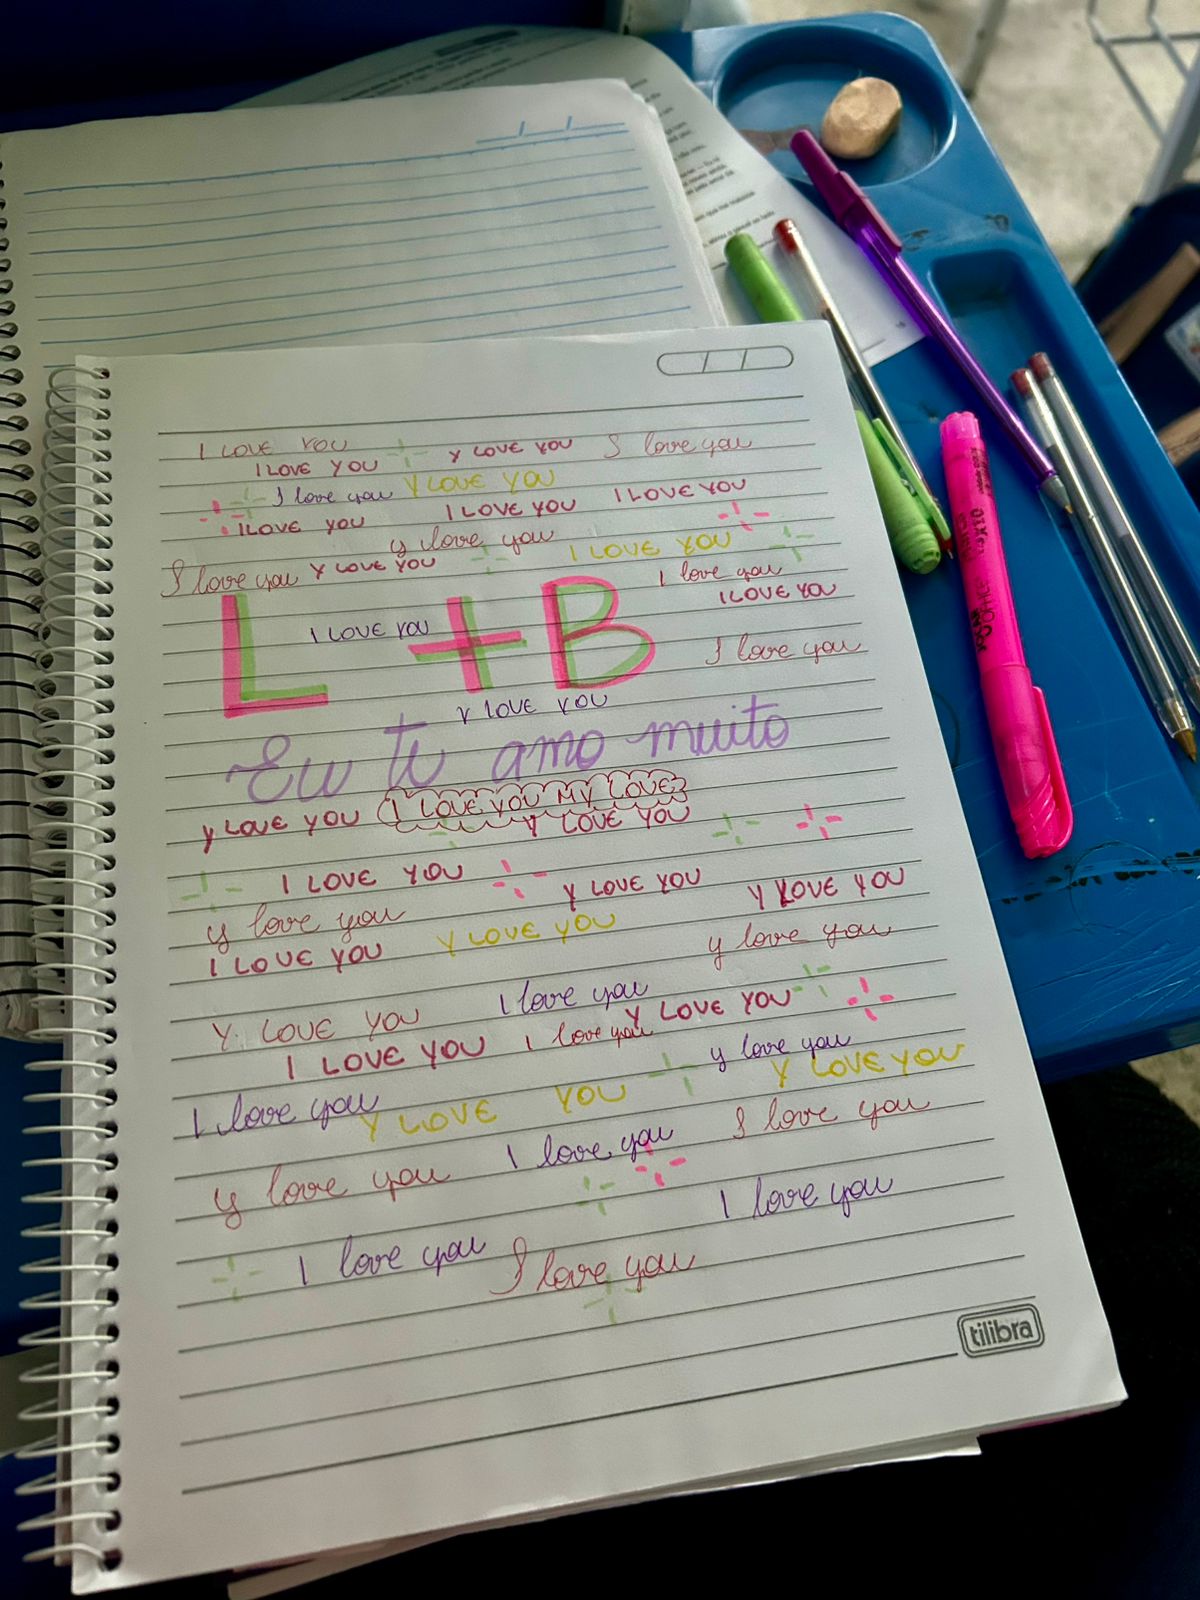 I LOVE YOU
I LOVE YOU Y LOVE YOU I love you
I love you Y LOVE YOU
I LOVE YOU I LOVE YOU I LOVE YOU
y love you I LOVE YOU
I love you Y LOVE YOU I love you
I LOVE YOU
L + B
I LOVE YOU
I love you
Y LOVE YOU
Eu te amo muito
Y LOVE YOU I LOVE YOU MY LOVE
Y LOVE YOU
I LOVE YOU Y LOVE YOU Y LOVE YOU
y love you
I LOVE YOU Y LOVE YOU y love you
Y LOVE YOU I love you
I LOVE YOU I love you Y LOVE YOU
y love you
I love you Y LOVE YOU Y LOVE YOU
y love you I love you I love you
I love you
I love you I love you
tilibra